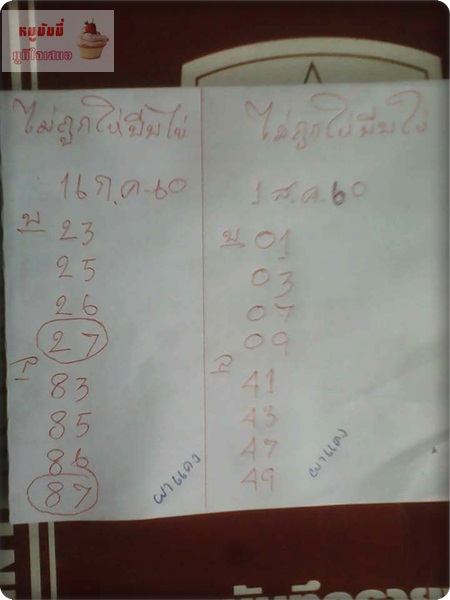 หมูมันนี่
ไม่ถูกให้บีบไข่
16 ก.ค. 60
บ 23
25
26
27
ล 83
85
86
87
ผาแดง
ไม่ถูกให้บีบไข่
1 ส.ค. 60
บ 01
03
07
09
ล 41
43
47
49
ผาแดง